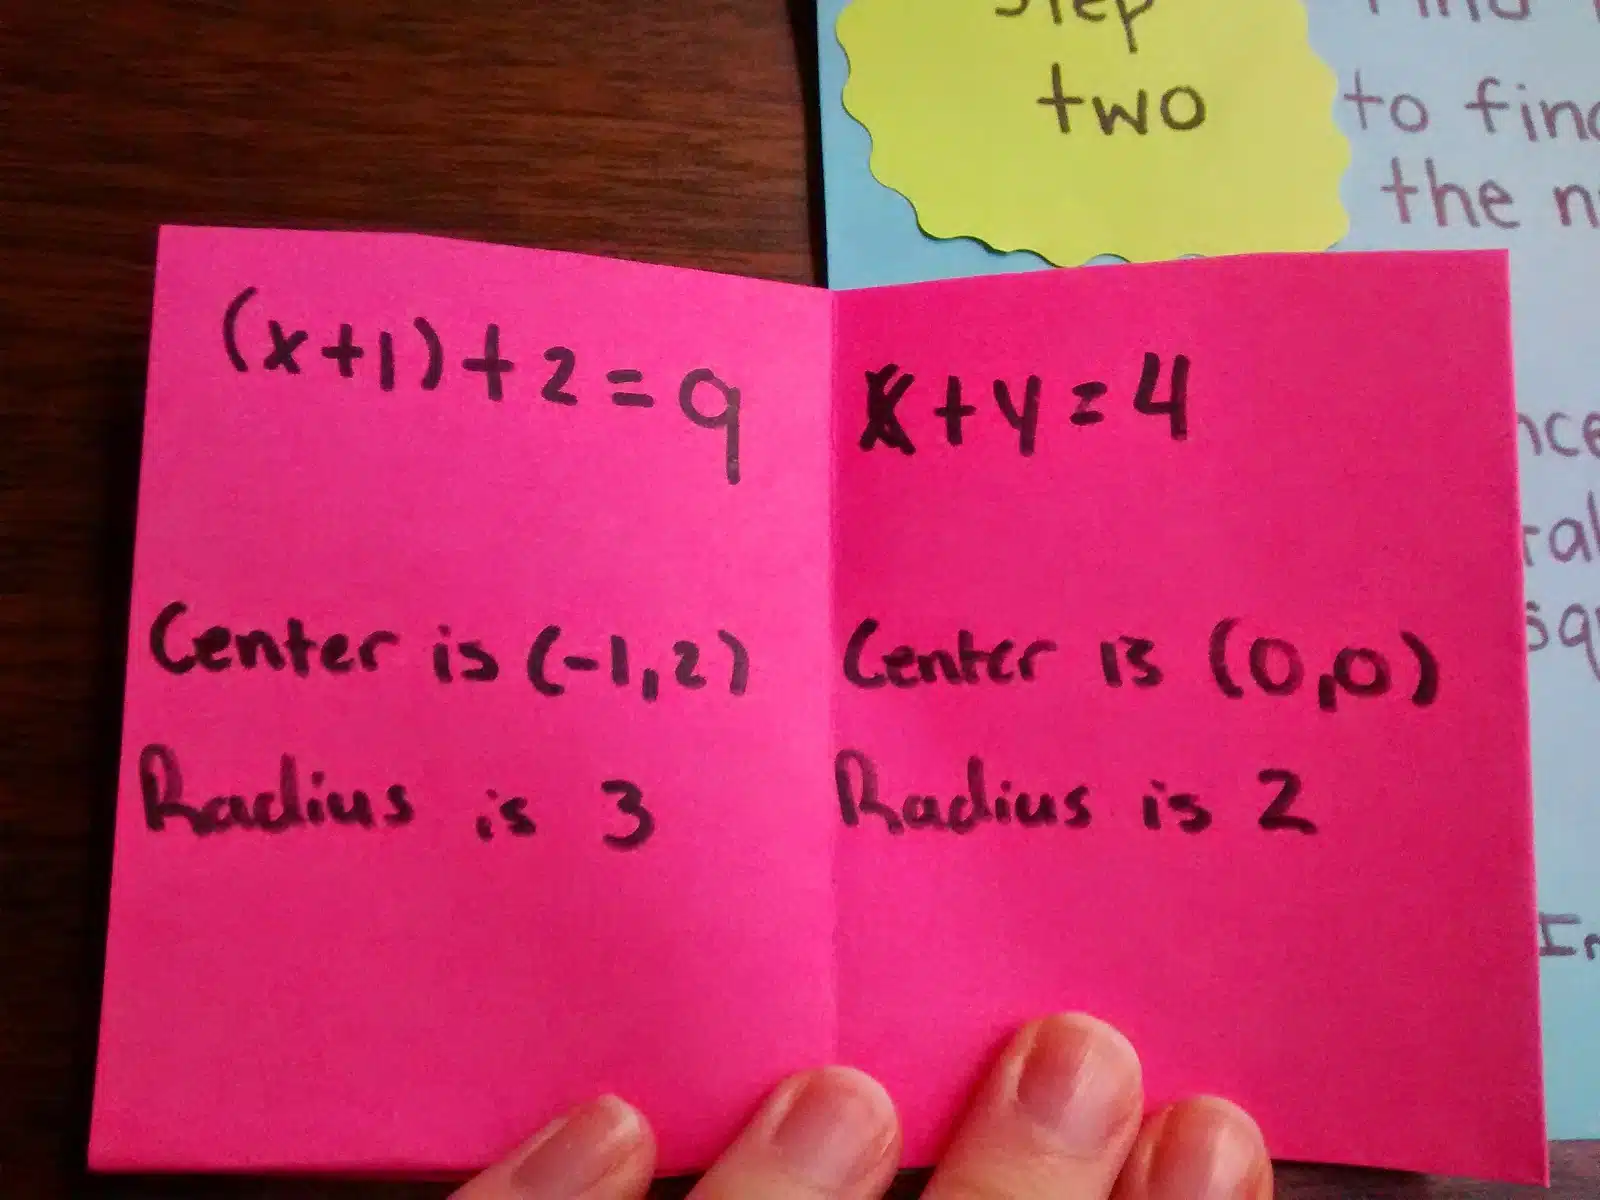 Step
two
Find
to find
the
(x+1)+2=9
Center is (-1,2)
Radius is 3
x+y=4
Center is (0,0)
Radius is 2